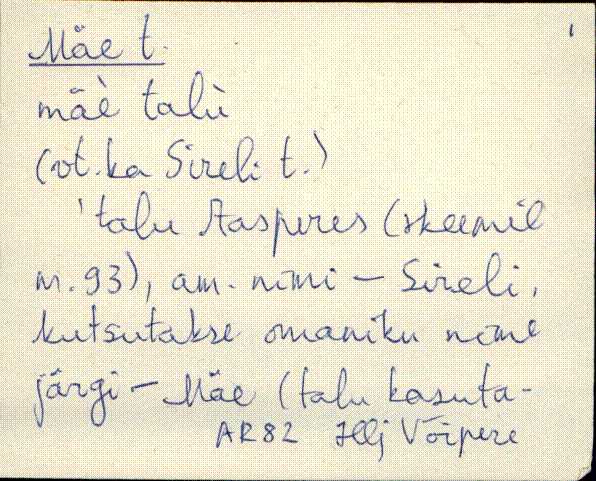 1
Mäe t.
mäè talù
(vt. ka Sireli t.)
'talu Aasperes (skeemil
nr. 93), am. nimi – Sireli,
kutsutakse omaniku nime
järgi – Mäe (talu kasuta-
AR82 Hlj Võipere